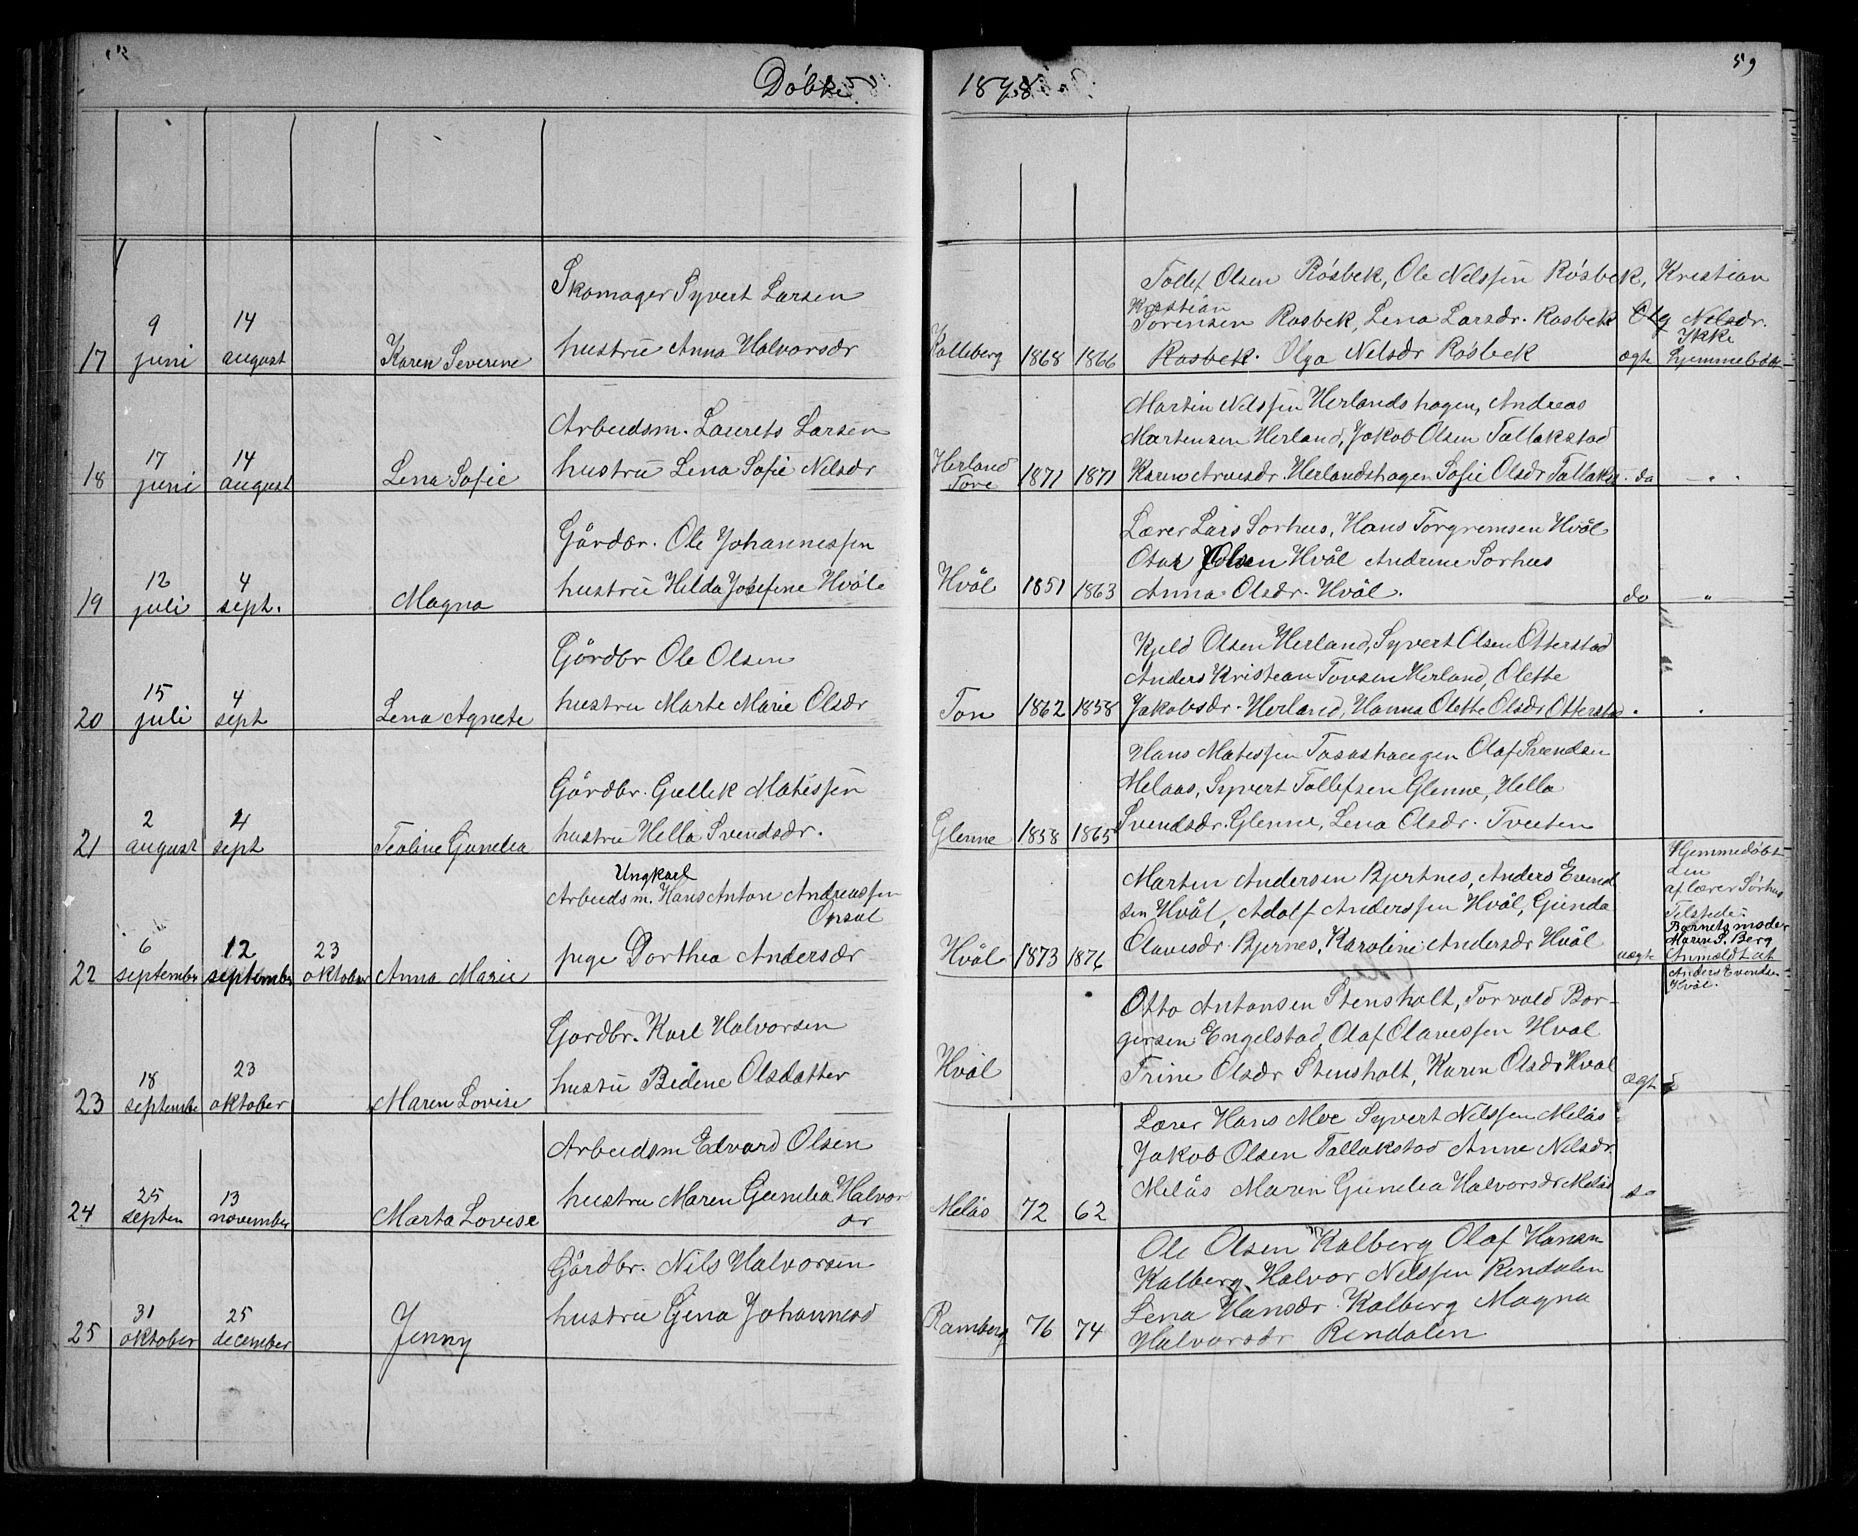 Döbte 1898.
59
17
9 juni
14 august
Karen Severine
Skomager Syvert Larsen
hustru Anna Halvorsdr
Kalleberg
1868
1866
Tollef Olsen Rösbek, Ole Nelssen Rösbek, Kristian
Kristian
Sörensen Rosbek, Lena Larsdr. Rosbek Olg Nelsdr.
Rosbek. Olga Nelsdr Rösbek
ægte
Ikke
hjemmeböbt
18
17 juni
14 august
Lena Sofie
Arbeidsm. Laurets Larsen
hustru Lena Sofie Nelsdr
Herland
Tore
1871
1871
Martin Nelssen Herlandshagen, Andreas
Martensen Herland, Jakob Olsen Tallakstad
Karen Arnesdr. Herlandshagen Sofie Olsdr Tallaks
do
"
19
12 juli
4 sept.
Magna
Gårdbr. Ole Johannessen
hustru Hilda Josefine Hvåle
Hvål
1851
1863
Lærer Lars Sorhus, Hans Torgremsen Hvål
Olsen Hvål Andrine Sorhus
Anna Olsdr. Hvål.
do
"
20
15 juli
4 sept
Lena Agnete
Gårdbr Ole Olsen
hustru Marte Marie Olsdr
Ton
1862
1858
Kjeld Olsen Herland, Syvert Olsen Otterstad
Anders Kristian Tovsen Herland, Olette
Jakobsdr. Herland, Hanna Olette Olsdr Otterstad
"
"
21
2 august
4 sept
Teoline Gunelia
Gårdbr. Gullek Matissen
hustru Hella Svendsdr.
Glenne
1858
1865
Hans Matissen Olaf Svendsen
Melaas, Syvert Tollefsen Glenne, Hella
Svendsdr. Glenne, Lena Olsdr. Tveten
22
6 september
12 september
23 oktober
Anna Marie
Ungkarl
Arbeidsm. Hans Anton Andreassen
Opsal
pige Dorthea Andersdr
Hvål
1873
1876
Martin Andersen Bjertnes, Anders Evend
sen Hvål, Adolf Anderssen Hvål, Gunda
Olavesdr. Bjernes, Karoline Andersdr Hvål
uægte
Hjemmedöbt
den
af lærer Sörhus
Tilstede:
Barnets moder
Maren S. Berg
Anmeldt at
Anders Evendsen
Hvål.
23
18 septembe
23 oktober
Maren Lovise
Gardbr. Karl Halvorsen
hustru Bedine Olsdatter
Hvål
Otto Antonsen Stensholt, Torvald Bor-
gersen Engelstad, Olaf Olavessen Hval
Trine Olsdr Stensholt, Karen Olsdr Hval
ægt
24
25 septem
13 november
Marta Lovise
Arbeidsm Edvard Olsen
hustru Maren Gunelia Halvor
dr
Melås
72
62
Lærer Hans Moe Syvert Nelssen Melås
Jakob Olsen Tallakstad Anne Nelsdr.
Melås Maren Gunelia Halvorsdr Melås
do
25
31 oktober
25 december
Jenny
Gårdbr. Nils Halvorsen
hustru Gina Johannesd
Ramberg
76
74
Ole Olsen Kalberg Olaf Hansen
Kalberg, Halvor Nelssen Rendalen
Lena Hansdr. Kalberg Magna
Halvorsdr Rendalen